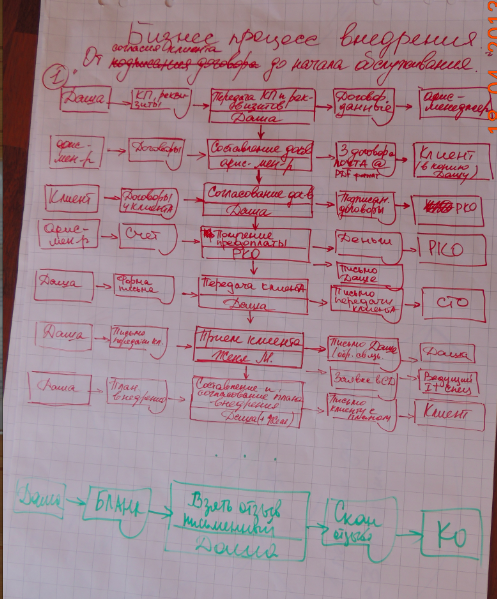 Бизнес процесс внедрения
согласия клиента
От подписания договора до начала обслуживания.
1
Даша
КП, рекви-
зиты
Передача КП и рек-
визитов
Даша
Договор.
данные
офис-
менеджер
офис-
мен-р
Договоры
Составление дог-в
офис. мен-р
3 договора
почта @
PDF формат
Клиент
(в копию
Дашу)
Клиент
Договоры
у клиента
Согласование дог-в
Даша
Подписан.
договоры
РКО
Офис-
мен-р
Счёт
Получение
предоплаты
РКО
Деньги
Письмо
Даше
РКО
Даша
Форма
письма
Передача клиента
Даша
Письмо
передачи
клиента
СТО
Даша
Письмо
передачи кл.
Прием клиента
Женя М.
Письмо Даше
Даша
Ведущий
IT спец
Даша
План
внедрения
Составление и
согласование плана
внедрения
Даша (+Женя)
Письмо
клиенту с
планом
Клиент
. . .
Даша
БЛАНК
Взять отзыв
письменный
Даша
Скан
отзыва
КО